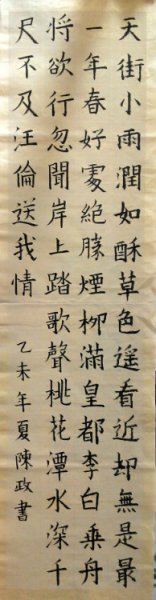 天街小雨潤如酥草色遙看近却無是最
一年春好處絕勝煙柳滿皇都李白乗舟
将欲行忽聞岸上踏歌聲桃花潭水深千
尺不及汪倫送我情
乙未年夏陳政書